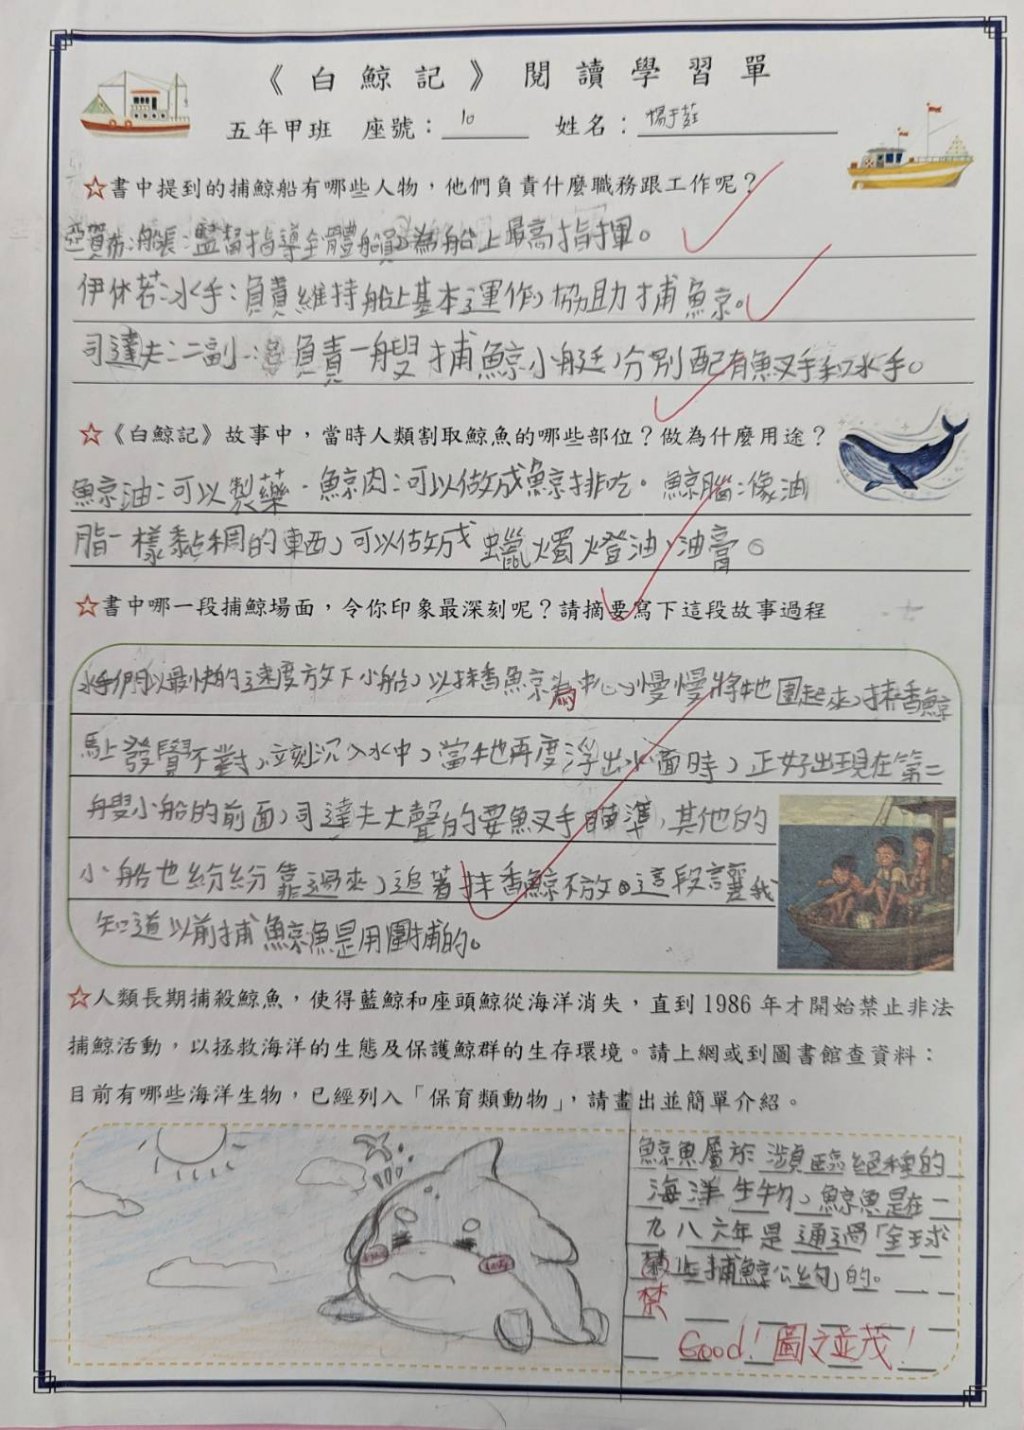 《白鯨記》閱讀學習單
五年甲班 座號：10 姓名：楊于莛
☆書中提到的捕鯨船有哪些人物，他們負責什麼職務跟工作呢？
亞賀布:船長:監督指導全體船員,為船上最高指揮。
伊休若:水手:負責維持船上基本運作,協助捕鯨。
司達夫:二副:負責一艘捕鯨小艇,分別配有魚叉手和水手。
☆《白鯨記》故事中，當時人類割取鯨魚的哪些部位？做為什麼用途？
鯨油:可以製藥、鯨肉:可以做成鯨排吃。鯨腦:像油
脂一樣黏稠的東西,可以做成蠟燭、燈油、油膏。
☆書中哪一段捕鯨場面，令你印象最深刻呢？請摘要寫下這段故事過程
水手們以最快的速度放下小船,以抹香鯨為中心,慢慢將牠圍起來,抹香鯨
馬上發覺不對,立刻沉入水中,當牠再度浮出水面時,正好出現在第二
艘小船的前面,司達夫大聲的要魚叉手瞄準,其他的
小船也紛紛靠過來,追著抹香鯨不放。這段讓我
知道以前捕鯨魚是用圍捕的。
☆人類長期捕殺鯨魚，使得藍鯨和座頭鯨從海洋消失，直到1986年才開始禁止非法
捕鯨活動，以拯救海洋的生態及保護鯨群的生存環境。請上網或到圖書館查資料：
目前有哪些海洋生物，已經列入「保育類動物」，請畫出並簡單介紹。
鯨魚屬於瀕臨絕種的
海洋生物,鯨魚是在一
九八六年是通過「全球
止捕鯨公約」的。
禁
Good! 圖文並茂!